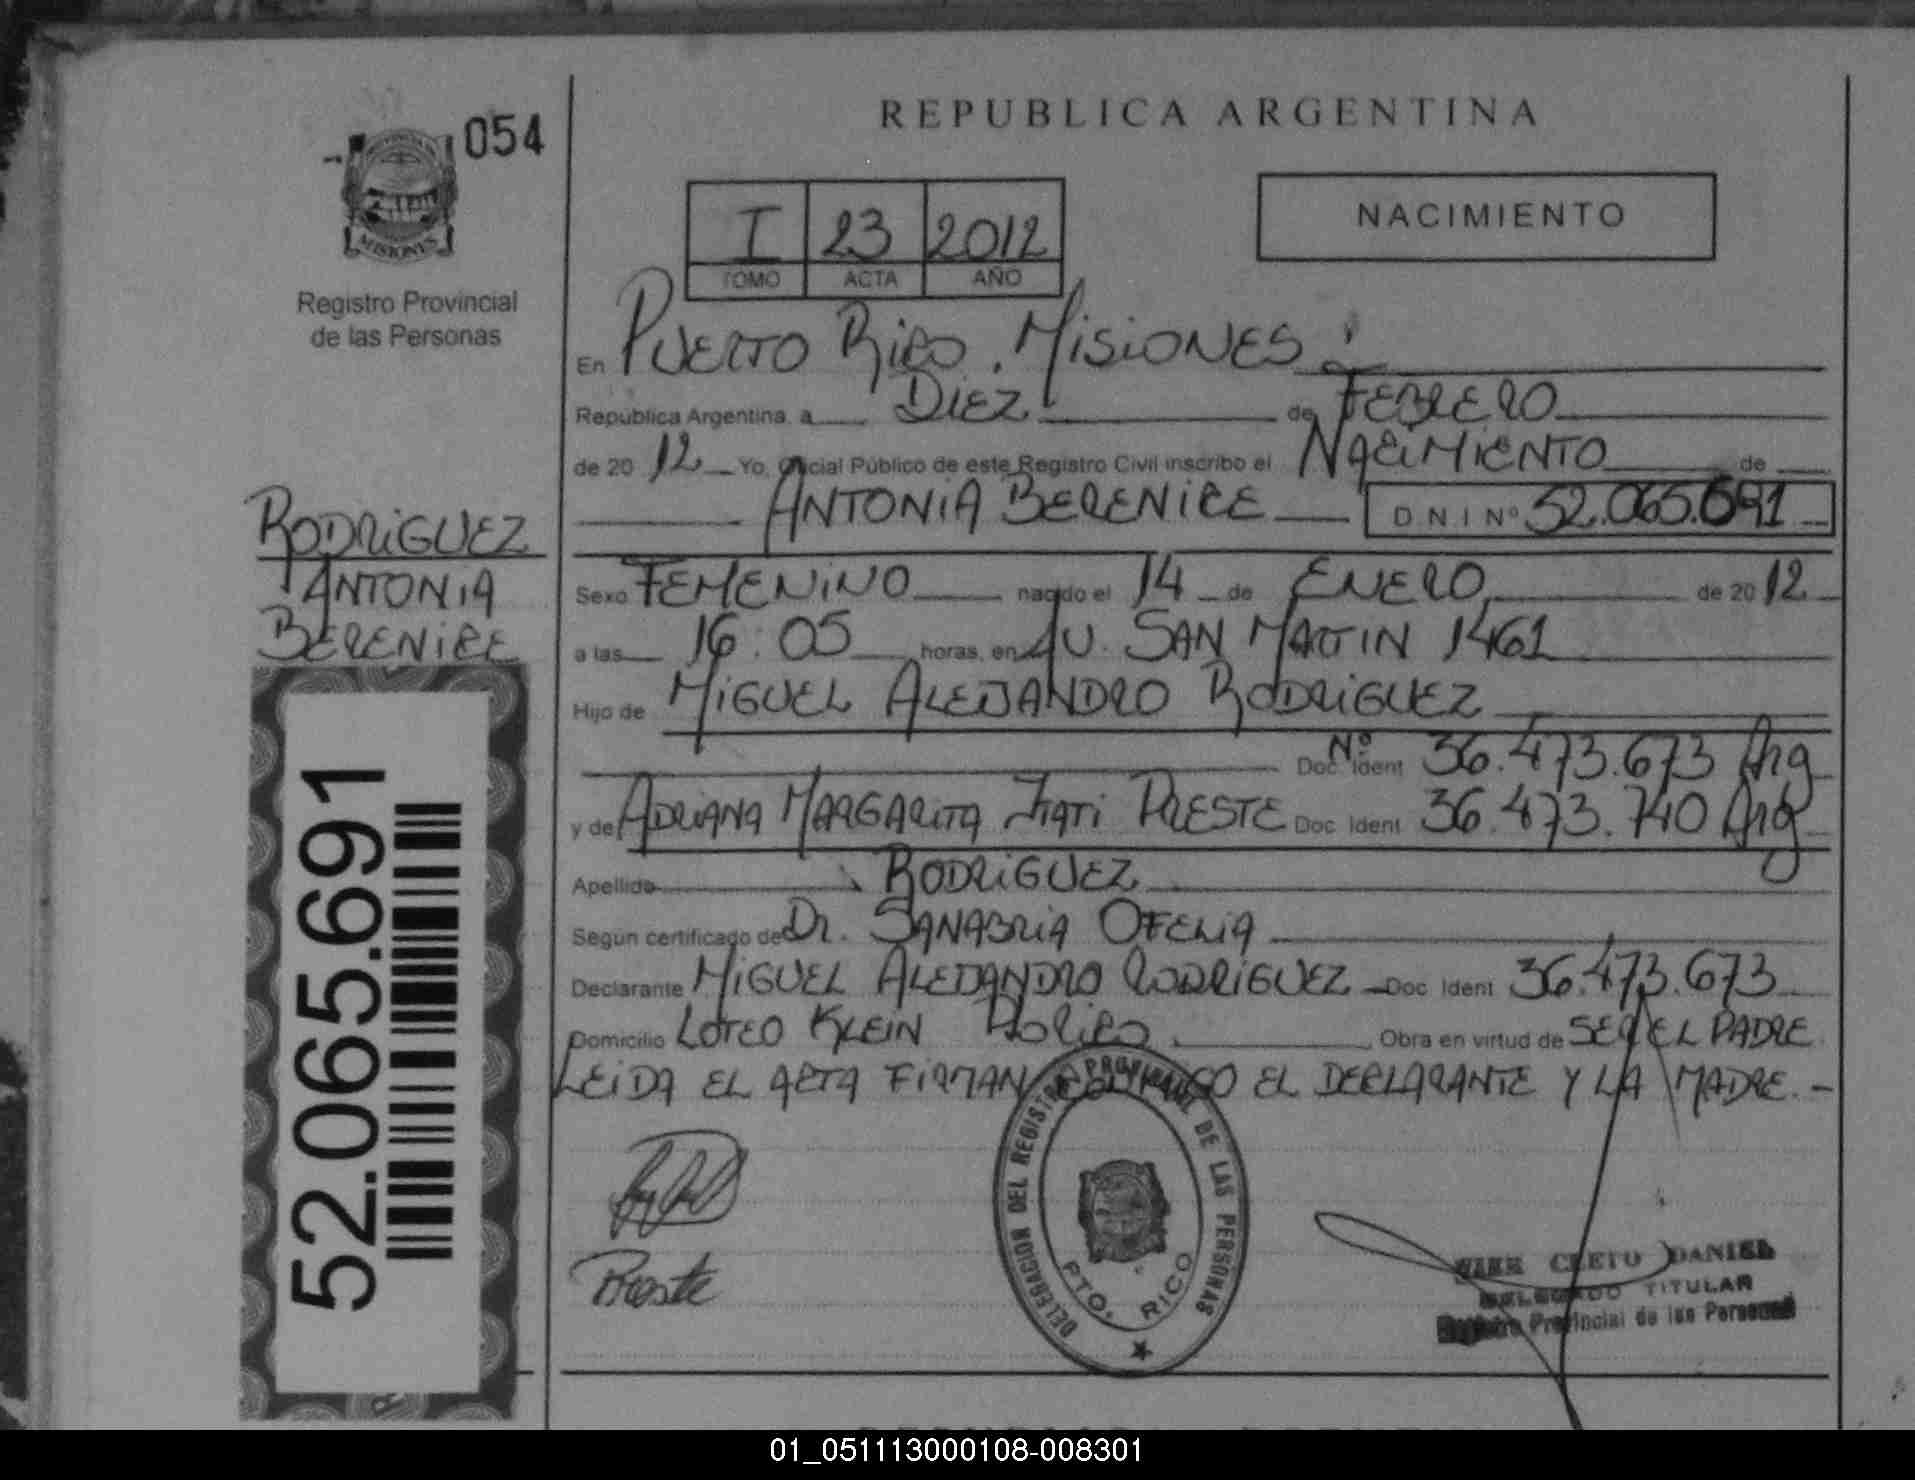 054
MISIONES
Registro Provincial
de las Personas
REPUBLICA ARGENTINA
NACIMIENTO
I 23 2012
TOMO ACTA AÑO
En PUERTO RICO. MISIONES
Republica Argentina, a DIEZ de FEBRERO
de 2012 Yo, Oficial Público de este Registro Civil inscribo el NACIMIENTO de
ANTONIA BERENICE D N I Nº 52.065.691
RODRIGUEZ
ANTONIA
BERENICE
Sexo FEMENINO nacido el 14 de ENERO de 2012
a las 16:05 horas, en AV. SAN MARTIN 1461
Hijo de MIGUEL ALEJANDRO RODRIGUEZ
Nº
Doc. Ident 36.473.673 Arg
y de ADRIANA MARGARITA ITATI PRESTE Doc Ident 36.473.740 Arg
Apellido RODRIGUEZ
Según certificado de Dr. SANABRIA OFELIA
Declarante MIGUEL ALEJANDRO RODRIGUEZ Doc Ident 36.473.673
Domicilio LOTEO KLEIN Obra en virtud de SER EL PADRE
LEIDA EL ACTA FIRMAN CONMIGO EL DECLARANTE Y LA MADRE.-
52.065.691
Preste
DELEGACION DEL REGISTRO PROVINCIAL DE LAS PERSONAS
PTO. RICO
CLETO DANIEL
DELEGADO TITULAR
Registro Provincial de las Personas
01_051113000108-008301